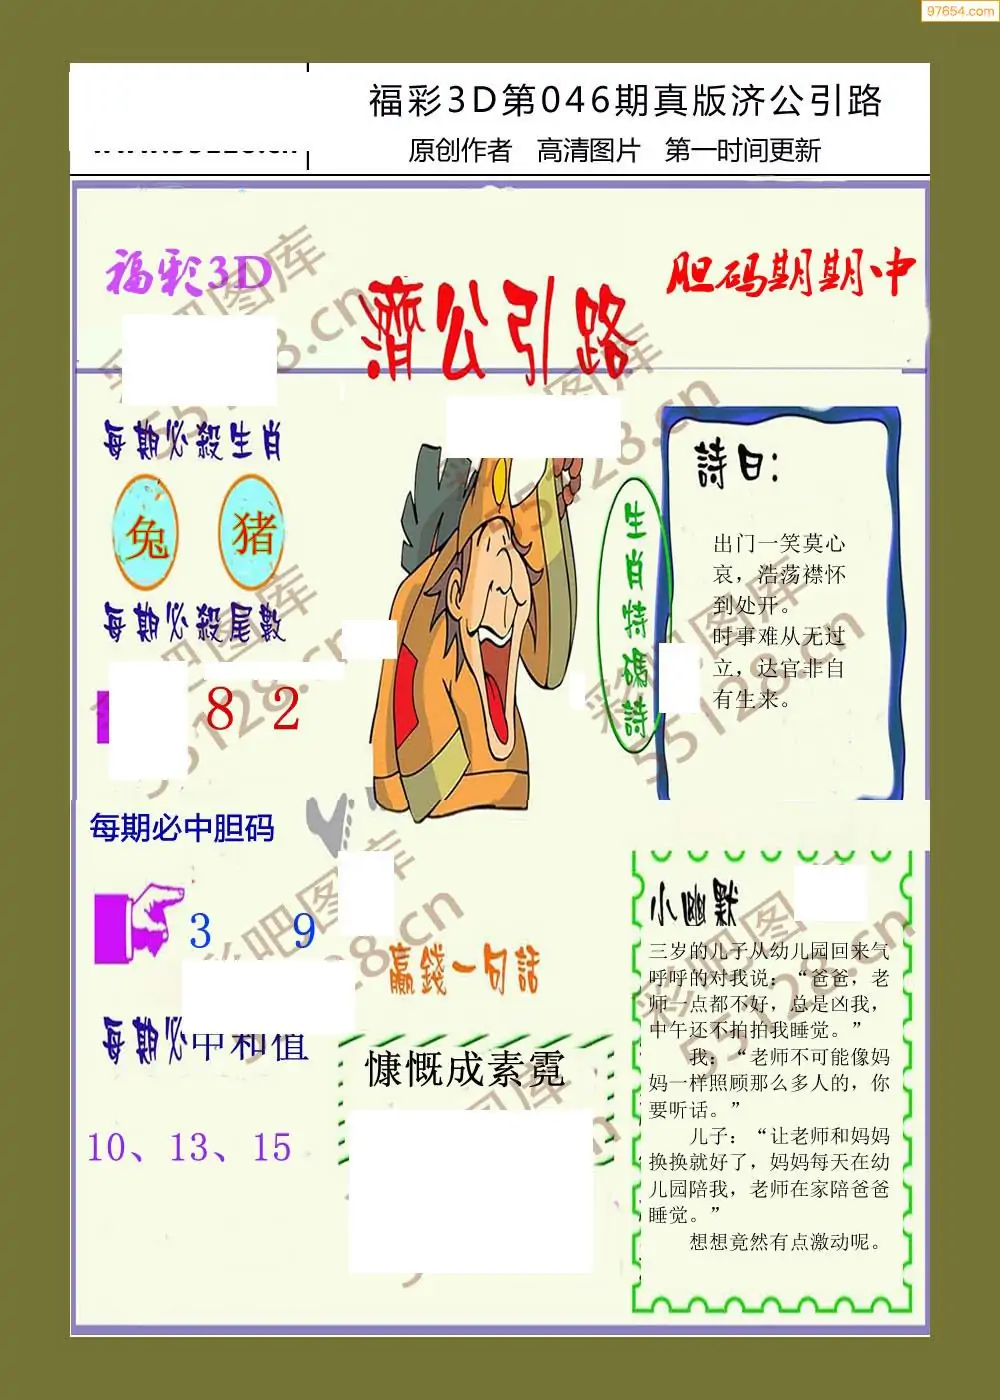 97654.com
福彩3D第046期真版济公引路
原创作者 高清图片 第一时间更新
福彩3D
濟公引路
胆码期期中
每期必殺生肖
兔 猪
每期必殺尾數
8 2
生肖特碼詩
詩曰:
出门一笑莫心
哀，浩荡襟怀
到处开。
时事难从无过
立，达官非自
有生来。
每期必中胆码
3 9
每期必中和值
10、13、15
贏錢一句話
慷慨成素霓
小幽默
三岁的儿子从幼儿园回来气
呼呼的对我说：“爸爸，老
师一点都不好，总是凶我，
中午还不拍拍我睡觉。”
我：“老师不可能像妈
妈一样照顾那么多人的，你
要听话。”
儿子：“让老师和妈妈
换换就好了，妈妈每天在幼
儿园陪我，老师在家陪爸爸
睡觉。”
想想竟然有点激动呢。
彩吧图库
55128.cn